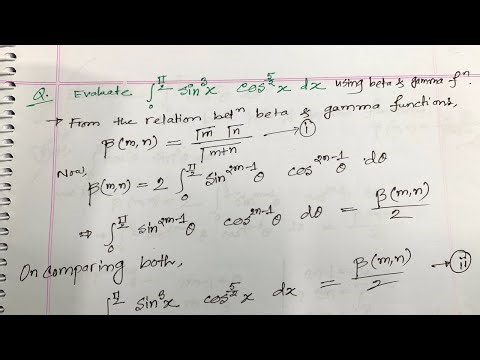 Q. Evaluate ∫₀^(π/2) sin³x cos^(5/2)x dx using beta & gamma fⁿ.
→ From the relation betⁿ beta & gamma functions,
β(m,n) = Γm Γn / Γm+n → (i)
Now,
β(m,n) = 2 ∫₀^(π/2) sin^(2m-1)θ cos^(2n-1)θ dθ
⇒ ∫₀^(π/2) sin^(2m-1)θ cos^(2n-1)θ dθ = β(m,n)/2
On comparing both,
∫^(π/2) sin³x cos^(5/2)x dx = β(m,n)/2 → (ii)